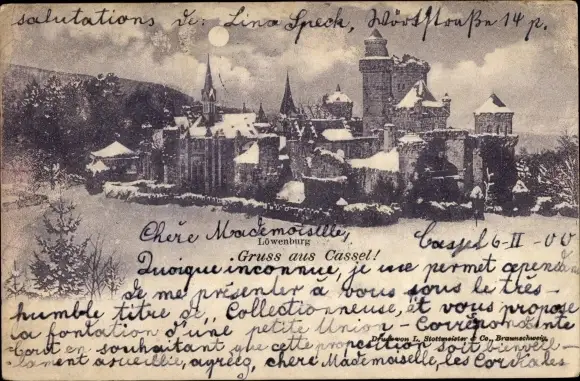 salutations de: Lina Speck, Wörtstraße 14 p.
Chère Mademoiselle,
Cassel 6-II-00
Löwenburg
Gruss aus Cassel!
Quoique inconnue, je me permet cependa
de me présenter à vous sous le très
humble titre de "Collectionneuse, et vous propose
la fontation d'une petite Union-Correspondente
Tout en souhaitant que cette proposition soit bienveil-
Druck von L. Stottmeister & Co., Braunschweig.
lament acueillie, agréez, chère Mademoiselle, les Cordiales